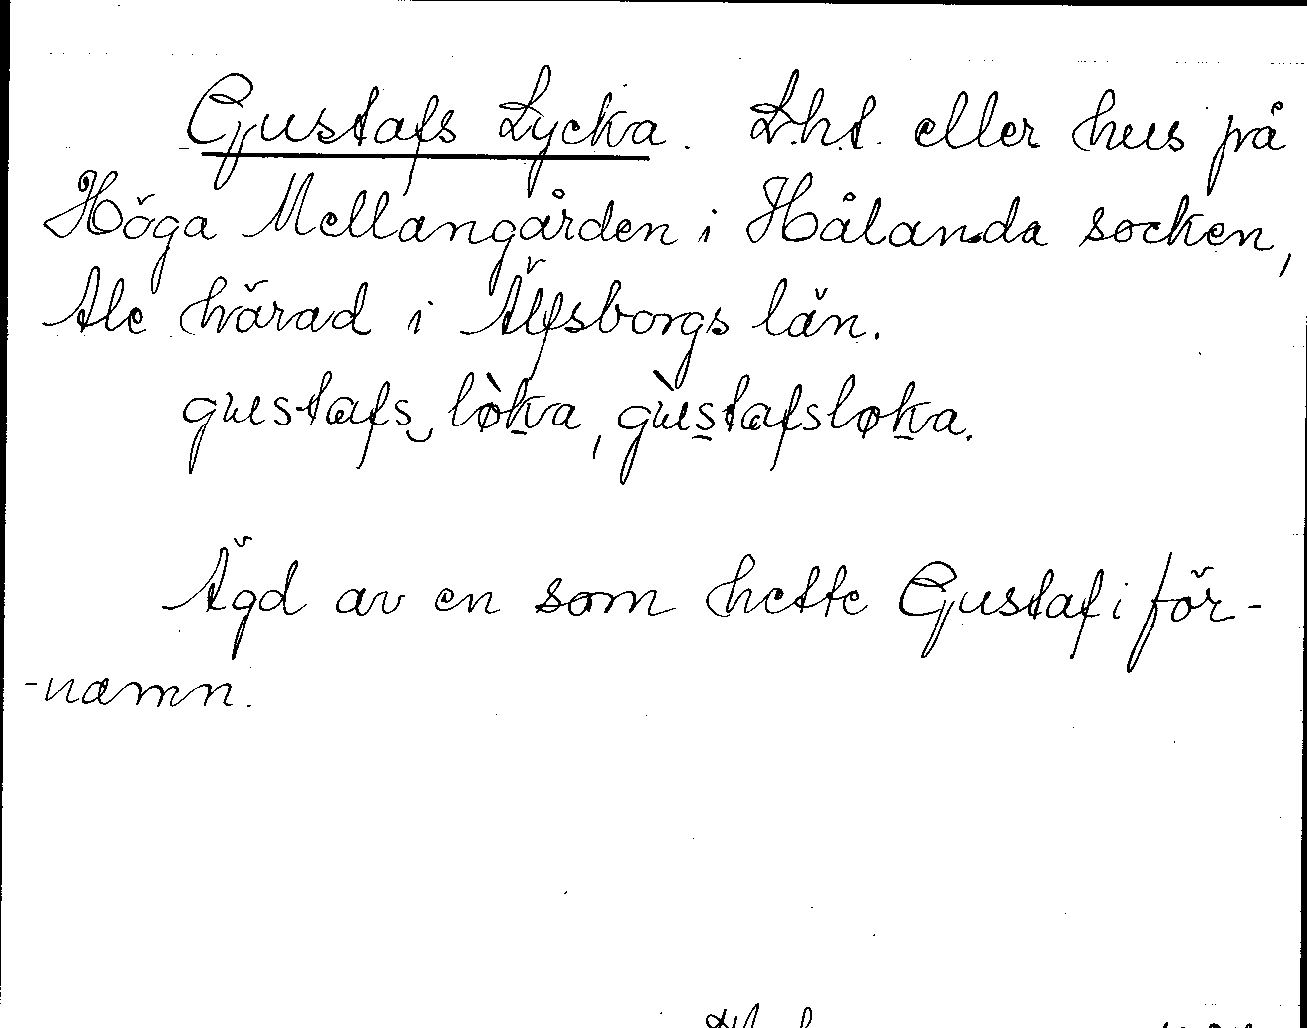 Gustafs Lycka. L.h.t. eller hus på
Höga Mellangården i Hålanda socken,
Ale härad i Älfsborgs län.
gustafs‿lø̀ka, gùstafsløka.
Ägd av en som hette Gustaf i för-
-namn.